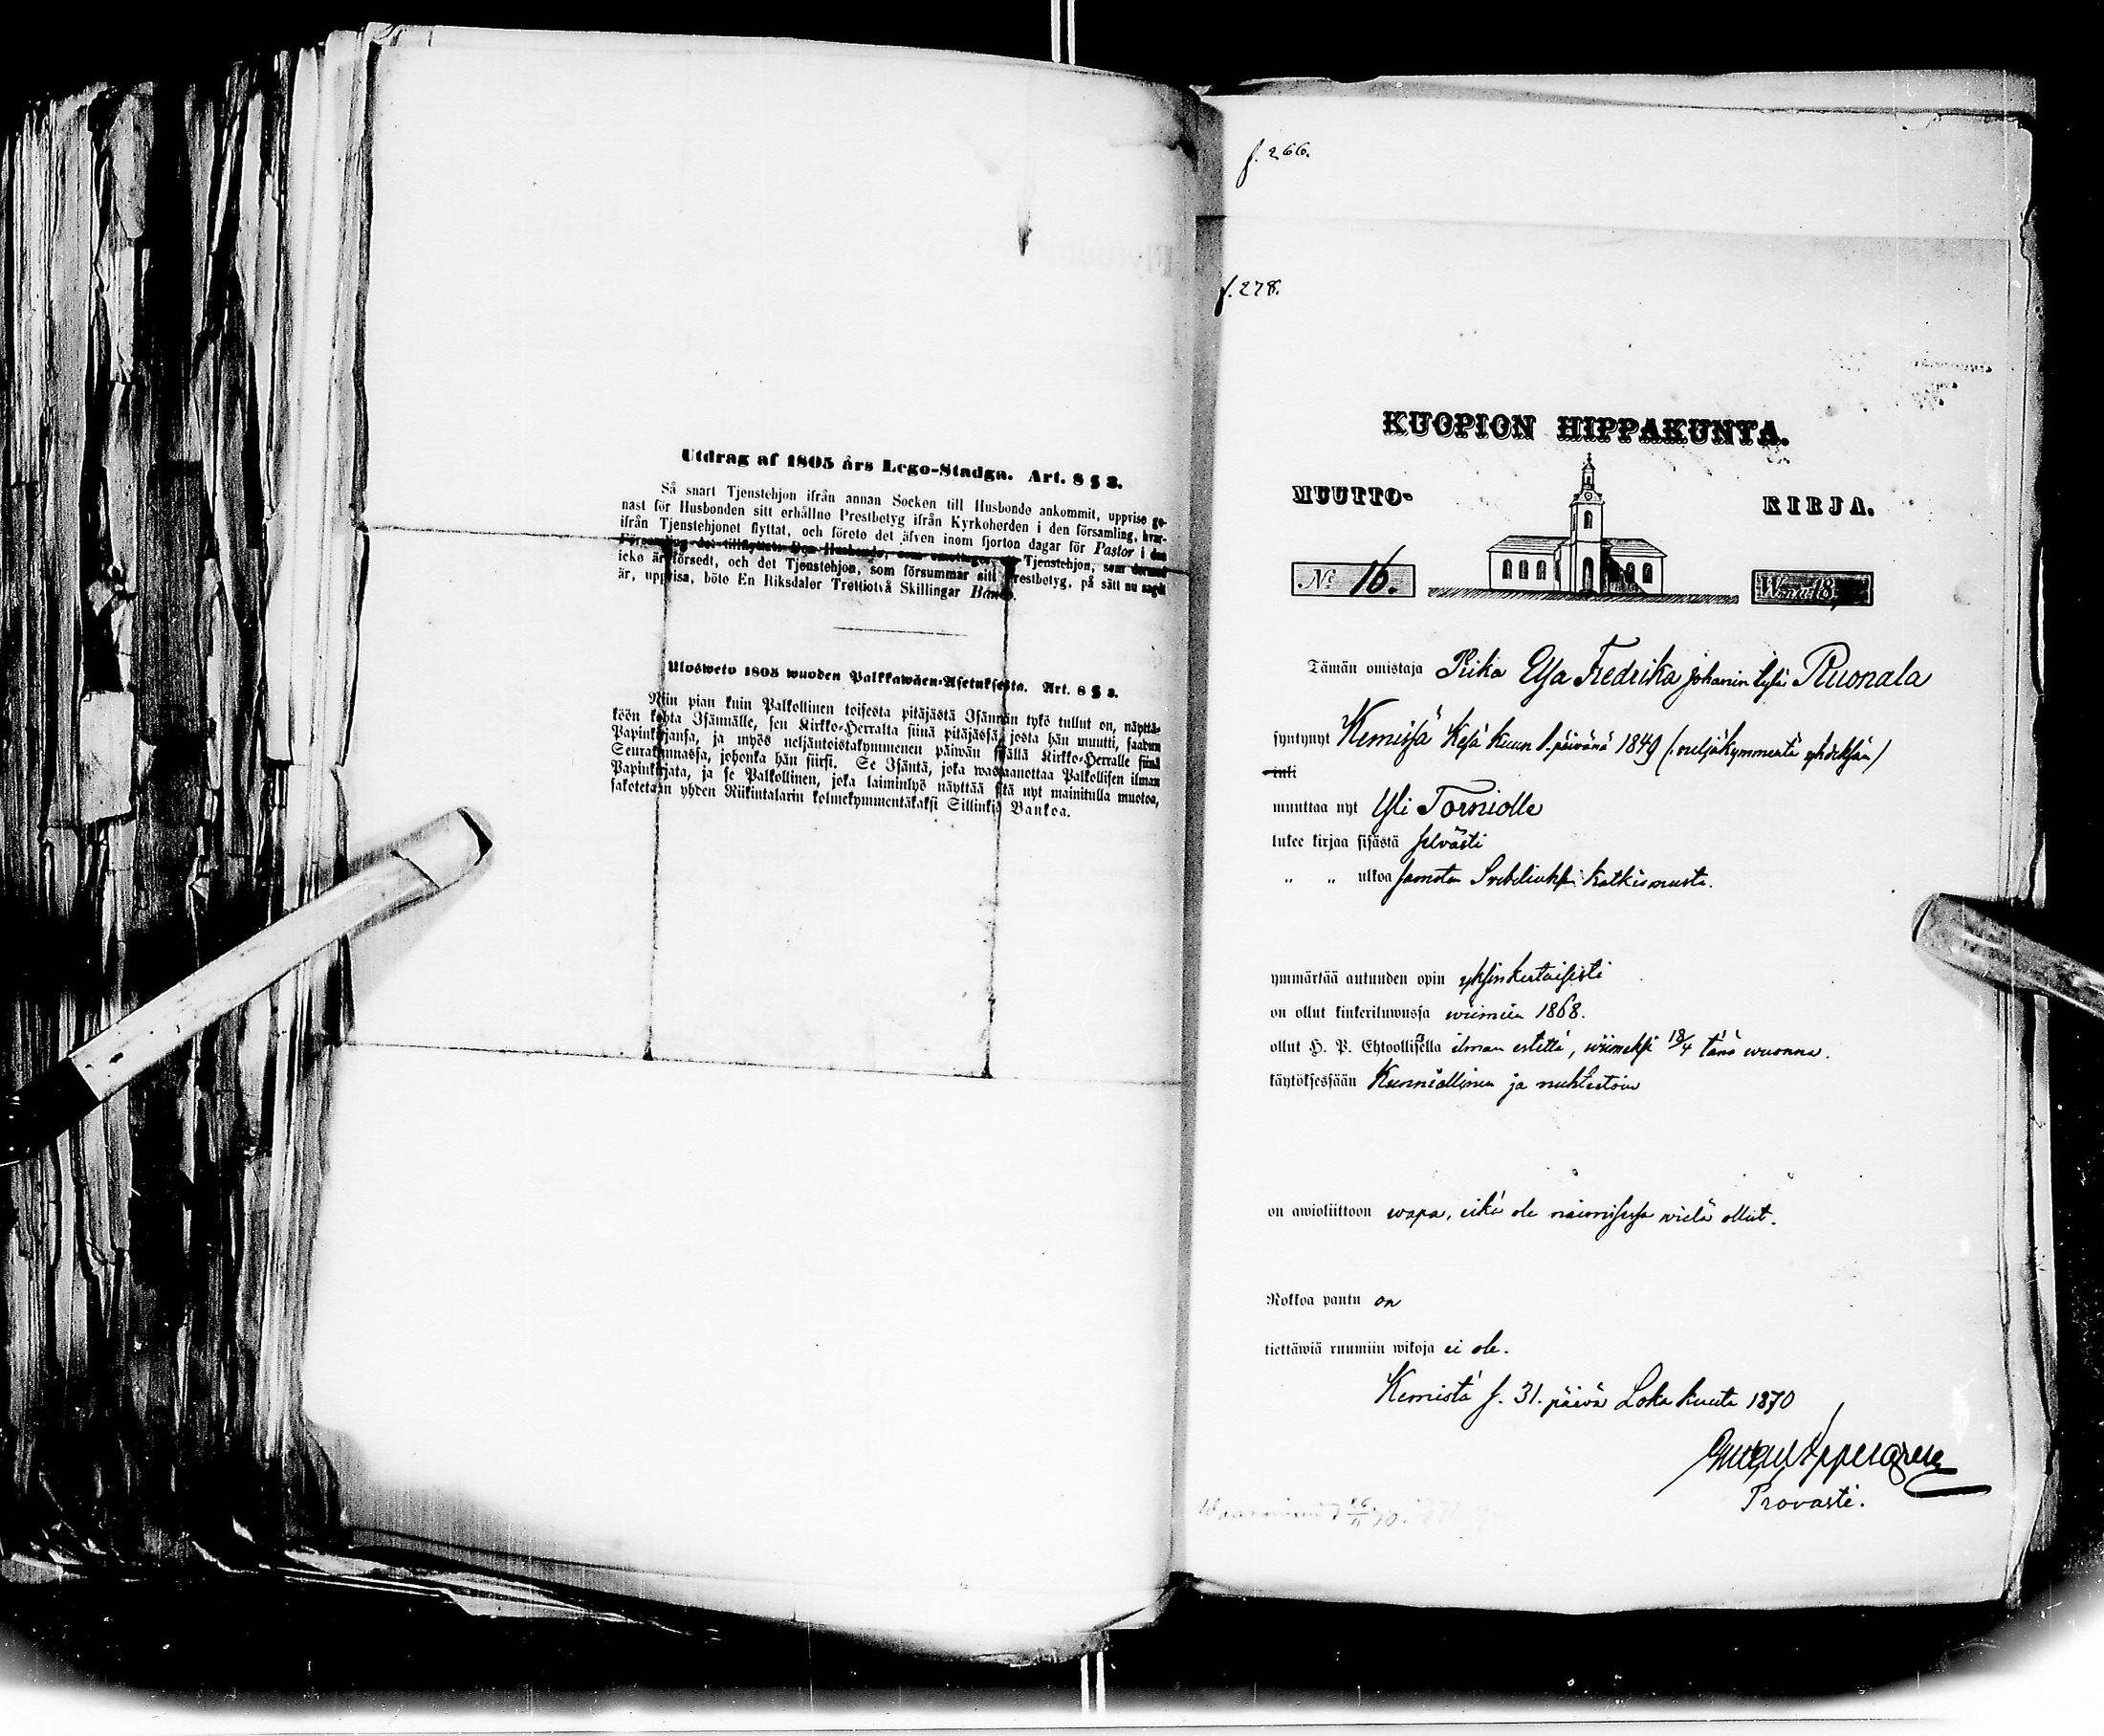 Utdrag af 1805 års Lego-Stadga. Art. 8 § 3.
Så snart Tjenstehjon ifrån annan Socken till Husbonde ankommit, uppvise ge-
nast för Husbonden sitt erhållne Prestbetyg ifrån Kyrkoherden i den församling, hvar-
ifrån Tjenstehjonet flyttat, och förete det äfven inom fjorton dagar för Pastor i den
Församling det tillflyttat. Den Husbonde, som emottager ett Tjenstehjon, som dermed
icke är försedt, och det Tjenstehjon, som försummar sitt Prestbetyg, på sätt nu sagdt
är, uppvisa, böte En Riksdaler Trettiotvå Skillingar Banco.
Ulosweto 1805 wuoden Palkkawäen-Asetuksesta. Art. 8 § 3.
Niin pian kuin Palkollinen toisesta pitäjästä Isännän tykö tullut on, näyttä-
köön kohta Isännälle, sen Kirkko-Herralta siinä pitäjässä, josta hän muutti, saadun
Papinkirjansa, ja myös neljäntoistakymmenen päiwän sisällä Kirkko-Herralle siinä
Seurakunnassa, johonka hän siirsi. Se Isäntä, joka wastaanottaa Palkollisen ilman
Papinkirjata, ja se Palkollinen, joka laiminlyö näyttää sitä nyt mainitulla muotoa,
sakotetaan yhden Riikintalarin kolmekymmentäkaksi Sillinkiä Bankoa.
f. 266.
f. 278.
KUOPION HIPPAKUNTA.
MUUTTO- KIRJA.
№ 16. W:na 18
Tämän omistaja Piika Elsa Fredrika Johanin tytär Ruonala
syntynyt Kemissä Kesä kuun 1. päivänä 1849 (:neljäkymmentä yhdeksän/
muuttaa nyt Yli Torniolle
lukee kirjaa sisästä selvästi
„ „ ulkoa samota Svebeliuksen katkismusta.
ymmärtää autuuden opin yksinkertaisesti
on ollut kinkeriluwussa wiimein 1868.
ollut H. P. Ehtoollisella ilman estettä, wiimeksi 18/4 tänä wuonna.
käytöksessään Kunniallinen ja nuhteetoin
on awioliittoon wapa, eikä ole naimisessa wielä ollut.
Rokkoa pantu on
tiettäwiä ruumiin wikoja ei ole.
Kemistä s. 31. päivä Loka kuuta 1870
Provasti.